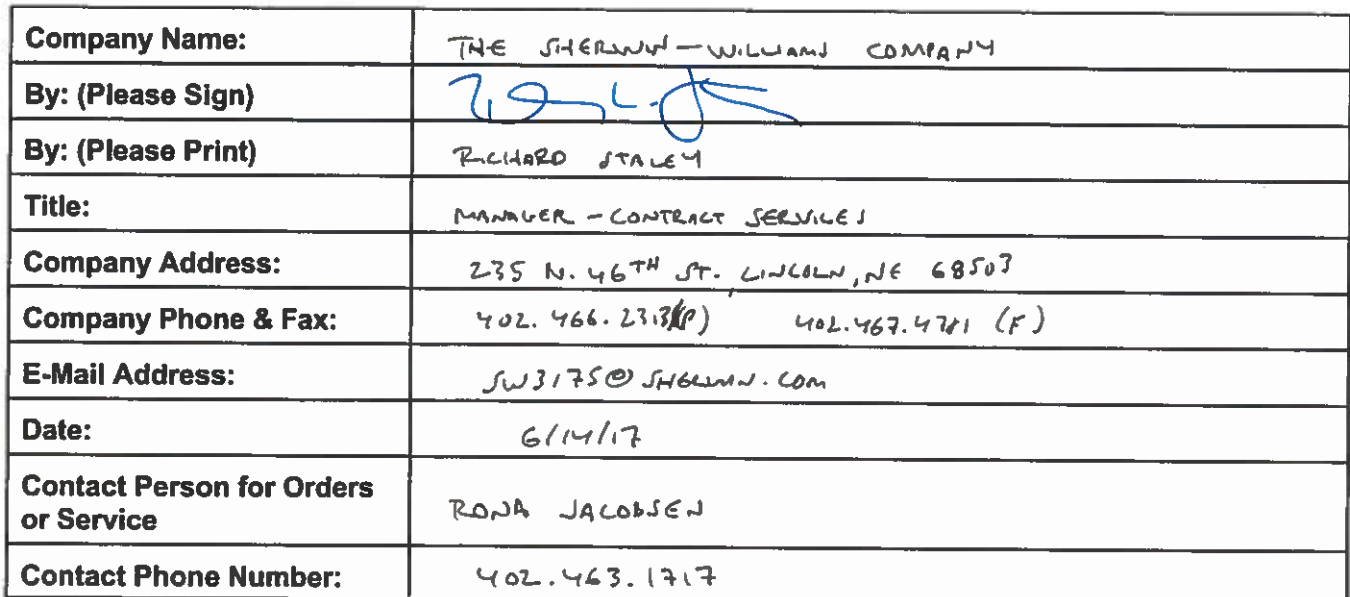 Company Name: THE SHERWIN-WILLIAMS COMPANY
By: (Please Sign)
By: (Please Print) RICHARD STALEY
Title: MANAGER - CONTRACT SERVICES
Company Address: 235 N. 46TH ST. LINCOLN, NE 68503
Company Phone & Fax: 402.466.2313 (P) 402.467.4781 (F)
E-Mail Address: SW3175@SHERWIN.COM
Date: 6/14/17
Contact Person for Orders
or Service RONA JACOBSEN
Contact Phone Number: 402.463.1717